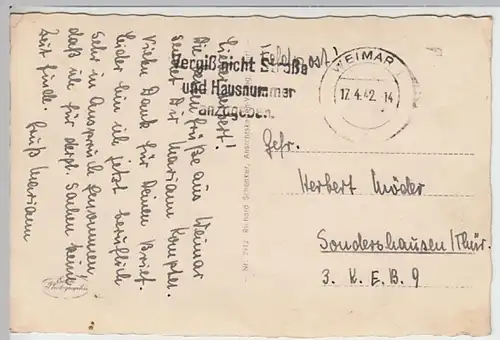 Feldpost!
Vergiß nicht Straße
und Hausnummer
anzugeben.
WEIMAR
17.4.42. 14
Gefr.
Herbert Möder
Sondershausen/Thür.
3. K. E. B. 9
Lieber Herbert!
Die besten Grüße aus Weimar
sendet Dir Mariann Kompter.
Vielen Dank für Deinen Brief.
Leider bin ich jetzt beruflich
sehr in Anspruch genommen
daß ich für dergl. Sachen keine
Zeit finde. Gruß Mariann
Nr. 7912 Richard Schenker, Ansichtskarten-Verlag
Echte
Photographie